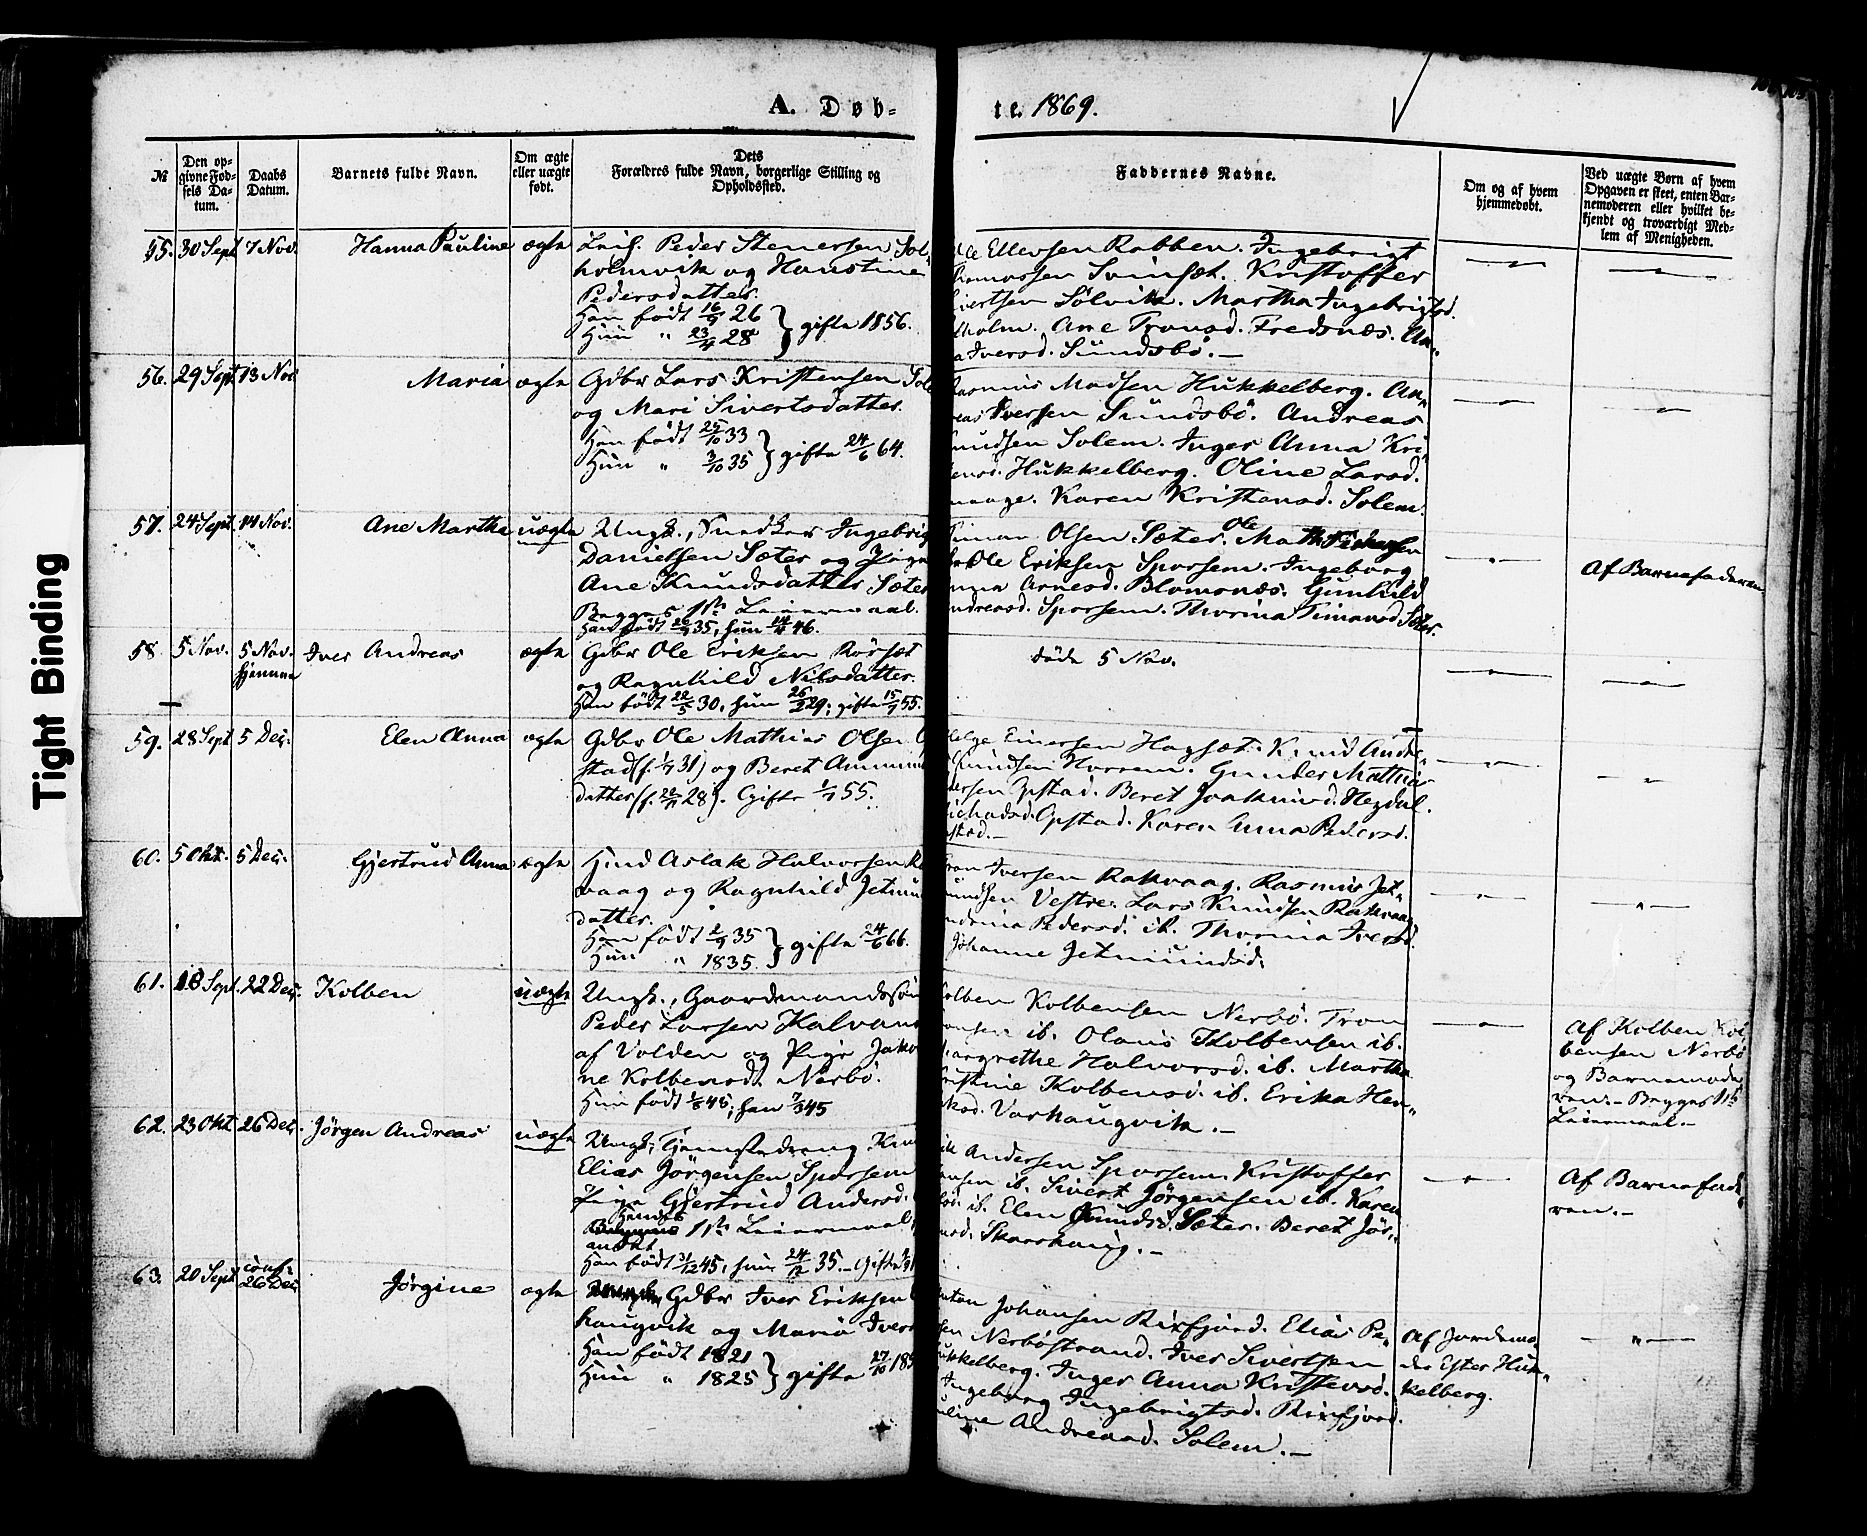 A. Døb-
te. 1869.
№
Den op-
givne Fød-
sels Da-
tum.
Daabs
Datum.
Barnets fulde Navn.
Om ægte
eller uægte
født.
Dets
Forældres fulde Navn, borgerlige Stilling og
Opholdssted.
Faddernes Navne.
Om og af hvem
hjemmedøbt.
Ved uægte Børn af hvem
Opgaven er skeet, enten Bar-
nemoderen eller hvilket be-
kjendt og troværdigt Med-
lem af Menigheden.
Tight Binding
55. 30 Sept 7 Nov. Hanna Pauline ægte Peder Stenersen Sol-
holmvik og Hanstine
Pedersdatter.
Han født 16/9 26
Hun " 23/4 28 } gifte 1856.
Ellevsen Robben. Ingebrigt
Svinsæt. Kristoffer
Sivertsen Sølvik. Martha Ingebrigtsd.
holm. Ane Tronsd. Frednæs. An-
Iversd. Sundsbö. —
56. 29 Sept 13 Nov Maria ægte Gdbr Lars Kristensen Sole
og Mari Sivertsdatter.
Han født 25/10 33
Hun " 3/10 35 } gifte 24/6 64.
Rasmus Madsen Hukkelberg. An-
reas Iversen Sundsbö. Andreas
nudsen Solem. Inger Anna Kri-
ensd. Hukkelberg. Oline Larsd.
Karen Kristensd. Solem
57. 24 Sept. 14 Nov. Ane Martha uægte Ungk., Snedker Ingebrig
Danielsen Sæter og Pige
Ane Knudsdatter Sæter
Begges 1ste Leiermaal.
Han født 26/9 35, hun 46.
Timan Olsen Sæter. Ole
Ole Eriksen Sporsem. Ingeborg
Arnesd. Blomsnæs. Gunhild
ndreasd. Sporsem. Thorina Timansd Sæter.
Af Barnefaderen
58 5 Nov. 5 Nov. hjemme Iver Andreas ægte Gdbr Ole Eriksen Rörsæt
og Ragnhild Nilsdatter.
Han født 22/5 30, hun 26/2 29; gifte 15/7 55.
döde 5 Nov.
59. 28 Sept 5 Dec. Elen Anna ægte Gdbr Ole Mathias Olsen
stad (f. 1/7 31) og Beret Ammun
datter (f. 28). Gifte 1/7 55.
Helge Einersen Hagsæt. Knud Andr-
Knudsen Horrem. Gunder Mathias
dersen Opstad. Beret Joakimsd. Hegdal.
Opstad. Karen Anna Pedersd.
stad. —
60. 5 Okt. 5 Dec. Gjertrud Anna ægte Hmd Aslak Halvorsen R
vaag og Ragnhild Jetmund
datter.
Han født 2/9 35
Hun " 1835. } gifte 24/6 66.
Tron Iversen Rakvaag. Rasmus Jet-
mundsen Vestre. Lars Knudsen Rakvaag
Pedersd. ib. Thorina Iversd.
Johanne Jetmundsd.
61. 18 Sept. 22 Dec. Kolben uægte Ungk., Gaardmandssøn
Peder Larsen Halvan
af Volden og Pige Jako
ne Kolbensd. Nerbö.
Hun født 1/8 45, han 7/3 45
Kolben Kolbensen Nerbö. Tron
ib. Olaus Kolbensen ib.
Margrethe Halvorsd. ib. Martha
Kristine Kolbensd. ib. Erika Hen-
Varhaugvik. —
Af Kolben Kol-
bensen Nerbö
og Barnemode
ren. – Begges 1ste
Leiermaal. –
62. 23 Okt 26 Dec. Jörgen Andreas uægte Ungk., Tjenestedreng Knud
Elias Jörgensen Sporsem
Pige Gjertrud Andersd.
Hendes
1ste Leiermaal,
Han født 31/12 45, hun 24/12 35. – Gifte
Andersen Sporsem. Kristoffer
ib. Sivert Jörgensen ib. Karen
ib. Elen Knudsd. Sæter. Beret Jör-
Skarshaug. –
Af Barnefade-
ren. –
63. 20 Sept conf. 26 Dec Jörgine ægte Gdbr Iver Eriksen
haugvik og Maria Ivers
Han født 1821
Hun " 1825 } gifte 27/10 185
Anton Johansen Rixfjord. Elias Pe-
sen Nerböstrand. Iver Sivertsen
Hukkelberg. Inger Anna Kristensd.
Ingeborg Ingebrigtsd. Rixfjord.
Pauline Andreasd. Solem. –
Af Jordemo-
der Ester Huk-
kelberg.